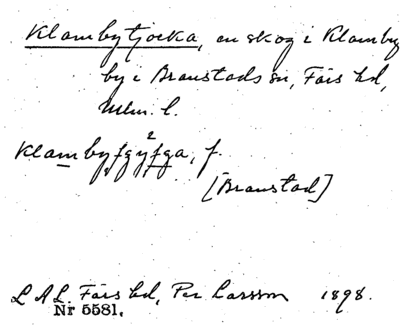 Klambytjocka, en skog i Klamby
by i Branstads sn, Färs hd,
Mlm. l.
Klambyfgyfga, f.
2
[Branstad]
L A L. Färs hd, Per Larsson 1898.
Nr 5581.